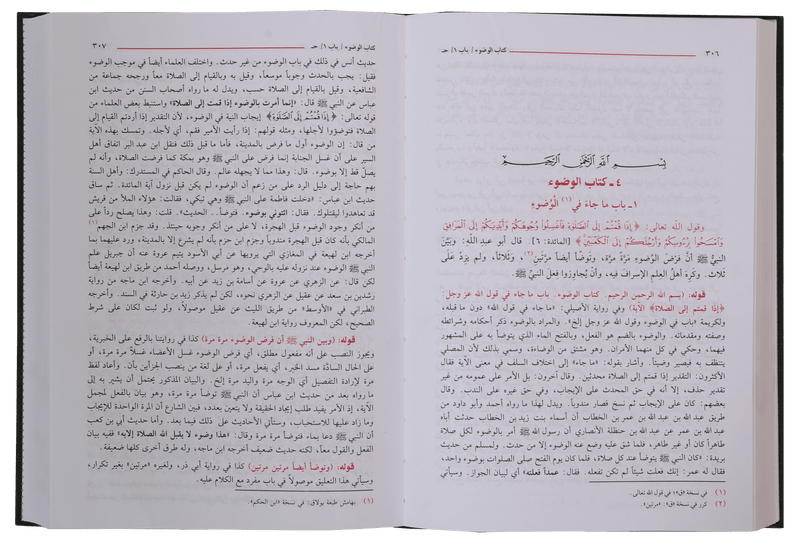 ٣٠٦ كتاب الوضوء/ باب ١/ حـ
بِسْمِ اللَّهِ الرَّحْمَنِ الرَّحِيمِ
٤ ـ كتاب الوضوء
١ ـ باب ما جاءَ في(١) الْوُضُوءِ
وقول اللَّه تعالى: ﴿إِذَا قُمْتُمْ إِلَى الصَّلَاةِ فَاغْسِلُوا وُجُوهَكُمْ وَأَيْدِيَكُمْ إِلَى الْمَرَافِقِ
وَامْسَحُوا بِرُءُوسِكُمْ وَأَرْجُلَكُمْ إِلَى الْكَعْبَيْنِ﴾ [المائدة: ٦]. قال أبو عبد اللَّهِ: وبَيَّنَ
النبيُّ ﷺ أنَّ فَرْضَ الوُضوءِ مَرَّةً مَرَّةً، وتَوضَّأ أيضاً مرَّتَينِ(٢)، وثَلاثاً، ولم يزِدْ عَلَى
ثَلاث. وكَرِهَ أهلُ العِلمِ الإسرافَ فيه، وأنْ يُجاوزوا فِعلَ النبيِّ ﷺ.
قوله: (بسم الله الرحمن الرحيم. كتاب الوضوء. باب ما جاء في قول الله عز وجل:
﴿إذا قمتم إلى الصلاة﴾ الآية) وفي رواية الأصيلي: «ما جاء في قول الله» دون ما قبله،
ولكريمة «باب في الوضوء وقول الله عز وجل إلخ». والمراد بالوضوء ذكر أحكامه وشرائطه
وصفته ومقدماته. والوضوء بالضم هو الفعل، وبالفتح الماء الذي يتوضأ به على المشهور
فيهما، وحكي في كل منهما الأمران. وهو مشتق من الوضاءة، وسمي بذلك لأن المصلي
يتنظف به فيصير وضيئاً. وأشار بقوله: «ما جاء» إلى اختلاف السلف في معنى الآية فقال
الأكثرون: التقدير إذا قمتم إلى الصلاة محدثين. وقال آخرون: بل الأمر على عمومه من غير
تقدير حذف، إلا أنه في حق المحدث على الإيجاب، وفي حق غيره على الندب. وقال
بعضهم: كان على الإيجاب ثم نسخ فصار مندوباً. ويدل لهذا ما رواه أحمد وأبو داود من
طريق عبد الله بن عبد الله بن عمر بن الخطاب أن أسماء بنت زيد بن الخطاب حدثت أباه
عبد الله بن عمر عن عبد الله بن حنظلة الأنصاري أن رسول الله ﷺ أمر بالوضوء لكل صلاة
طاهراً كان أو غير طاهر، فلما شق عليه وضع عنه الوضوء إلا من حدث. ولمسلم من حديث
بريدة: «كان النبي ﷺ يتوضأ عند كل صلاة، فلما كان يوم الفتح صلى الصلوات بوضوء واحد،
فقال له عمر: إنك فعلت شيئاً لم تكن تفعله. فقال: عمداً فعلته» أي لبيان الجواز. وسيأتي
(١) في نسخة «ق»: في قول الله تعالى.
(٢) كرر في نسخة «ق»: «مرتين».
كتاب الوضوء/ باب ١/ حـ ٣٠٧
حديث أنس في ذلك في باب الوضوء من غير حدث. واختلف العلماء أيضاً في موجب الوضوء
فقيل: يجب بالحدث وجوباً موسعاً، وقيل به وبالقيام إلى الصلاة معاً ورجحه جماعة من
الشافعية، وقيل بالقيام إلى الصلاة حسب، ويدل له ما رواه أصحاب السنن من حديث ابن
عباس عن النبي ﷺ قال: «إنما أمرت بالوضوء إذا قمت إلى الصلاة» واستنبط بعض العلماء من
قوله تعالى: ﴿إِذَا قُمْتُمْ إِلَى الصَّلَاةِ﴾ إيجاب النية في الوضوء، لأن التقدير إذا أردتم القيام إلى
الصلاة فتوضؤوا لأجلها، ومثله قولهم: إذا رأيت الأمير فقم، أي لأجله. وتمسك بهذه الآية
من قال: إن الوضوء أول ما فرض بالمدينة، فأما ما قبل ذلك فنقل ابن عبد البر اتفاق أهل
السير على أن غسل الجنابة إنما فرض على النبي ﷺ وهو بمكة كما فرضت الصلاة، وأنه لم
يصل قط إلا بوضوء. قال: وهذا مما لا يجهله عالم. وقال الحاكم في المستدرك: وأهل السنة
بهم حاجة إلى دليل الرد على من زعم أن الوضوء لم يكن قبل نزول آية المائدة. ثم ساق
حديث ابن عباس: «دخلت فاطمة على النبي ﷺ وهي تبكي، فقالت: هؤلاء الملأ من قريش
قد تعاهدوا ليقتلوك. فقال: ائتوني بوضوء. فتوضأ. . الحديث». قلت: وهذا يصلح رداً على
من أنكر وجود الوضوء قبل الهجرة، لا على من أنكر وجوبه حينئذ. وقد جزم ابن الجهم(١)
المالكي بأنه كان قبل الهجرة مندوباً وجزم ابن حزم بأنه لم يشرع إلا بالمدينة، ورد عليهما بما
أخرجه ابن لهيعة في المغازي التي يرويها عن أبي الأسود يتيم عروة عنه أن جبريل علم
النبي ﷺ الوضوء عند نزوله عليه بالوحي، وهو مرسل، ووصله أحمد من طريق ابن لهيعة أيضاً
لكن قال: عن الزهري عن عروة عن أسامة بن زيد عن أبيه. وأخرجه ابن ماجه من رواية
رشدين بن سعد عن عقيل عن الزهري نحوه، لكن لم يذكر زيد بن حارثة في السند. وأخرجه
الطبراني في «الأوسط» من طريق الليث عن عقيل موصولاً، ولو ثبت لكان على شرط
الصحيح، لكن المعروف رواية ابن لهيعة.
قوله: (وبين النبي ﷺ أن فرض الوضوء مرة مرة) كذا في روايتنا بالرفع على الخبرية،
ويجوز النصب على أنه مفعول مطلق، أي فرض الوضوء غسل الأعضاء غسلاً مرة مرة، أو
على الحال السادّة مسد الخبر، أي يفعل مرة، أو على لغة من ينصب الجزأين بأن. وأعاد لفظ
مرة لإرادة التفصيل أي الوجه مرة واليد مرة إلخ. والبيان المذكور يحتمل أن يشير به إلى
ما رواه بعد من حديث ابن عباس أن النبي ﷺ توضأ مرة مرة، وهو بيان بالفعل لمجمل
الآية، إذ الأمر يفيد طلب إيجاد الحقيقة ولا يتعين بعدد، فبين الشارع أن المرة الواحدة للإيجاب
وما زاد عليها للاستحباب، وستأتي الأحاديث على ذلك فيما بعد. وأما حديث أبي بن كعب
أن النبي ﷺ دعا بماء فتوضأ مرة مرة وقال: «هذا وضوء لا يقبل الله الصلاة إلابه» ففيه بيان
الفعل والقول معاً، لكنه حديث ضعيف أخرجه ابن ماجه، وله طرق أخرى كلها ضعيفة.
قوله: (وتوضأ أيضاً مرتين مرتين) كذا في رواية أبي ذر، ولغيره «مرتين» بغير تكرار،
وسيأتي هذا التعليق موصولاً في باب مفرد مع الكلام عليه.
(١) بهامش طبعة بولاق: في نسخة «ابن الحكم».